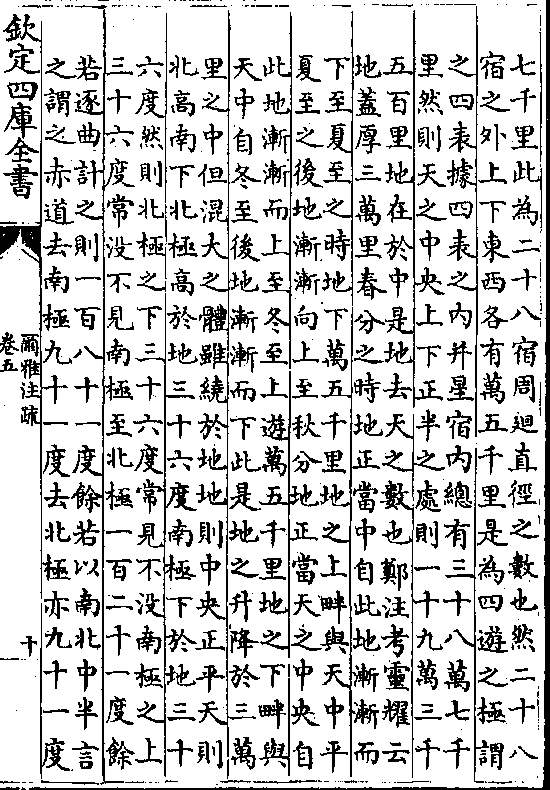 七千里此為二十八宿周迴直徑之數也然二十八
宿之外上下東西各有萬五千里是為四遊之極謂
之四表據四表之内并星宿内總有三十八萬七千
里然則天之中央上下正半之處則一十九萬三千
五百里地在於中是地去天之數也鄭注考靈耀云
地蓋厚三萬里春分之時地正當中自此地漸漸而
下至夏至之時地下萬五千里地之上畔與天中平
夏至之後地漸漸向上至秋分地正當天之中央自
此地漸漸而上至冬至上遊萬五千里地之下畔與
天中自冬至後地漸漸而下此是地之升降於三萬
里之中但混大之體雖繞於地地則中央正平天則
北高南下北極高於地三十六度南極下於地三十
六度然則北極之下三十六度常見不没南極之上
三十六度常没不見南極至北極一百二十一度餘
若逐曲計之則一百八十一度餘若以南北中半言
之謂之赤道去南極九十一度去北極亦九十一度
欽定四庫全書
爾雅注疏
卷五
十